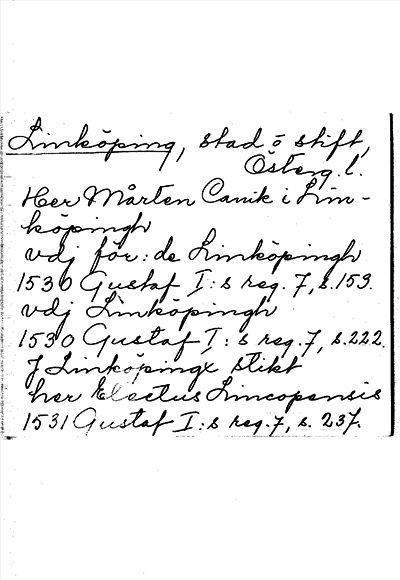 Linköping, stad o stift,
Österg. l.
Her Mårten Canik i Lin-
köpingh
vdj för: de Linköpingh
1530 Gustaf I:s reg. 7, s. 159.
vdj Linköpingh
1530 Gustaf I:s reg. 7, s. 222.
J Linköpingx stikt
her Electus Lincopensis
1531 Gustaf I:s reg. 7, s. 237.